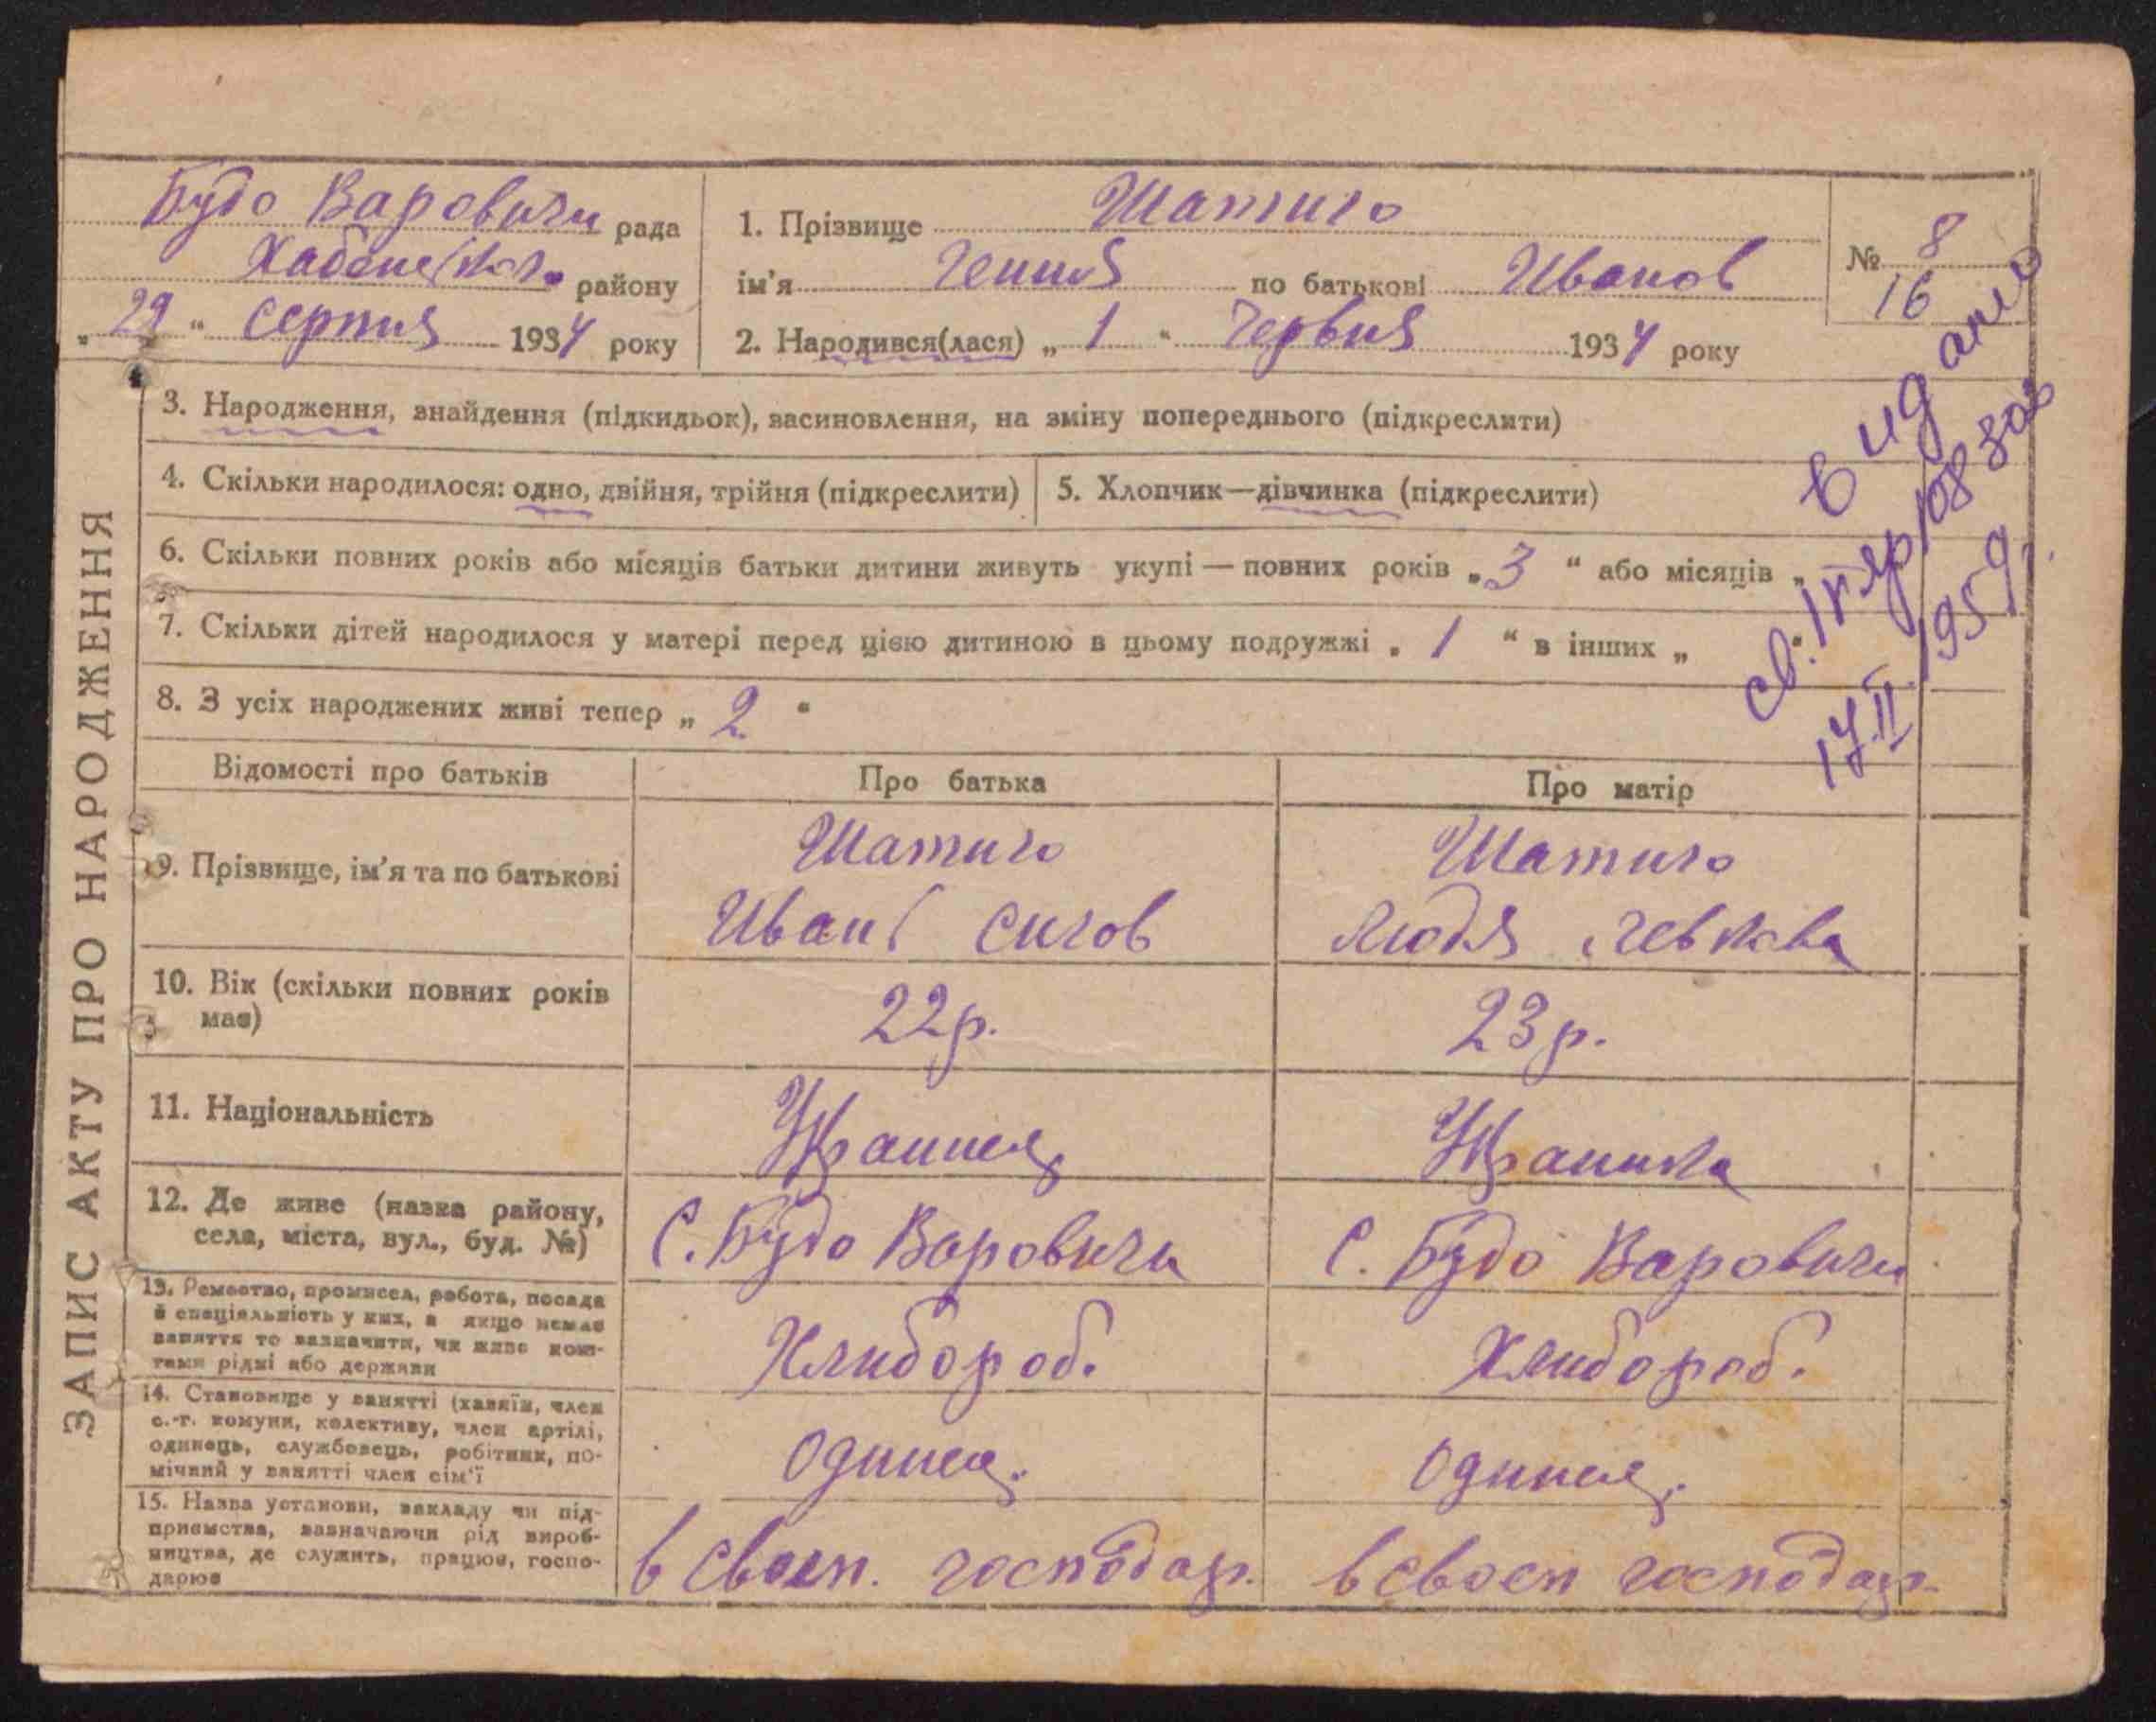 ЗАПИС АКТУ ПРО НАРОДЖЕННЯ
Будо Варовичи рада
Хабенског. району
„ 29 “ серпня 1934 року
1. Прізвище Шатило
ім'я Гення по батькові Иванов
2. Народився(лася) „ 1 “ Червня 1934 року
№ 8
16
3. Народження, знайдення (підкидьок), васиновлення, на зміну попереднього (підкреслити)
4. Скільки народилося: одно, двійня, трійня (підкреслити)
5. Хлопчик—дівчинка (підкреслити)
6. Скільки повних років або місяців батьки дитини живуть укупі — повних років „ 3 “ або місяців „
7. Скільки дітей народилося у матері перед цією дитиною в цьому подружжі „ 1 “ в інших „ “
8. З усіх народжених живі тепер „ 2 “
видано
св. 108
17.II 1959
Відомості про батьків
Про батька
Про матір
9. Прізвище, ім'я та по батькові
Шатило
Иван Силов
Шатило
Людя Левкова
10. Вік (скільки повних років
має)
22р.
23р.
11. Національність
Украинец
Украинка
12. Де живе (назва району,
села, міста, вул., буд. №)
С. Будо Варовичи
С. Будо Варовичи
13. Ремество, промисел, робота, посада
й спеціяльність у них, а якщо немає
заняття то зазначити, чи живе кош-
тами рідні або держави
Хлибороб.
Хлибороб.
14. Становище у занятті (хазяїн, член
с.-г. комуни, колективу, член артілі,
одинець, службовець, робітник, по-
мічний у занятті член сім'ї
Одинец.
Одинец.
15. Назва установи, закладу чи під-
приємства, зазначаючи рід вироб-
ництва, де служить, працює, госпо-
дарює
в своем. господар.
в своем господар.